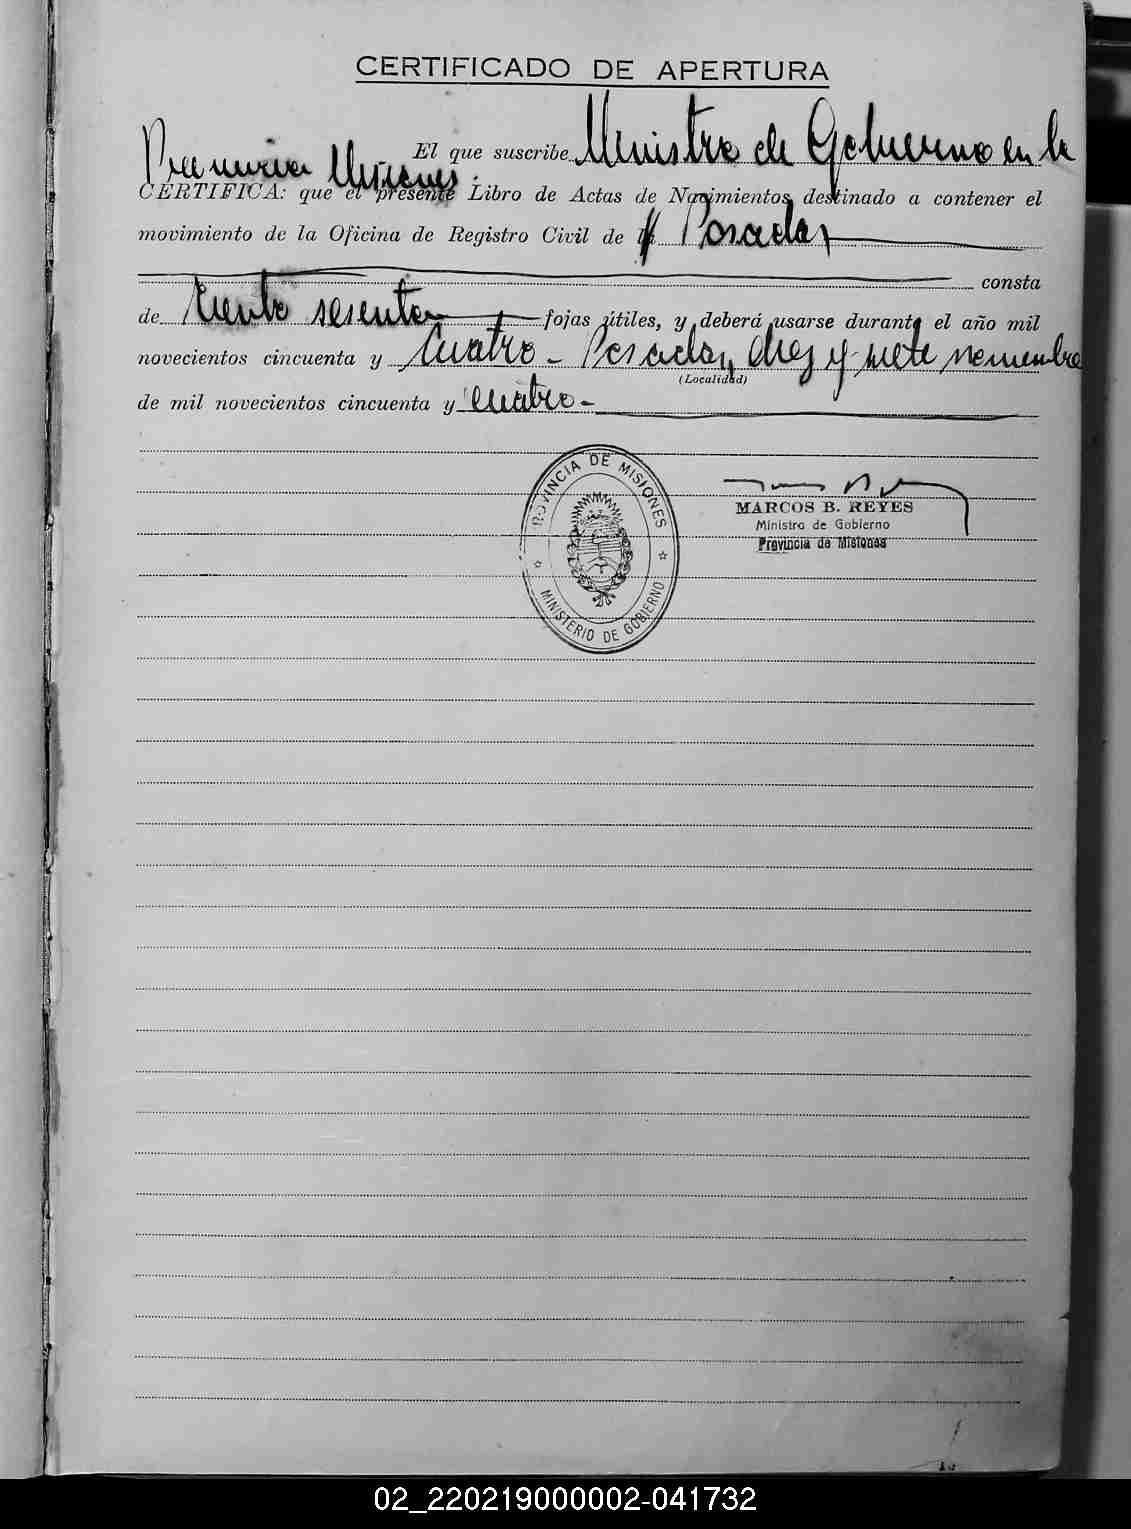 CERTIFICADO DE APERTURA
El que suscribe Ministro de Gobierno en la
Provincia Misiones.
CERTIFICA: que el presente Libro de Actas de Nacimientos destinado a contener el
movimiento de la Oficina de Registro Civil de Posadas
consta
de Ciento sesenta fojas útiles, y deberá usarse durante el año mil
novecientos cincuenta y Cuatro - Posadas, diez y siete noviembre
(Localidad)
de mil novecientos cincuenta y cuatro -
PROVINCIA DE MISIONES
MINISTERIO DE GOBIERNO
MARCOS B. REYES
Ministro de Gobierno
Provincia de Misiones
02_220219000002-041732